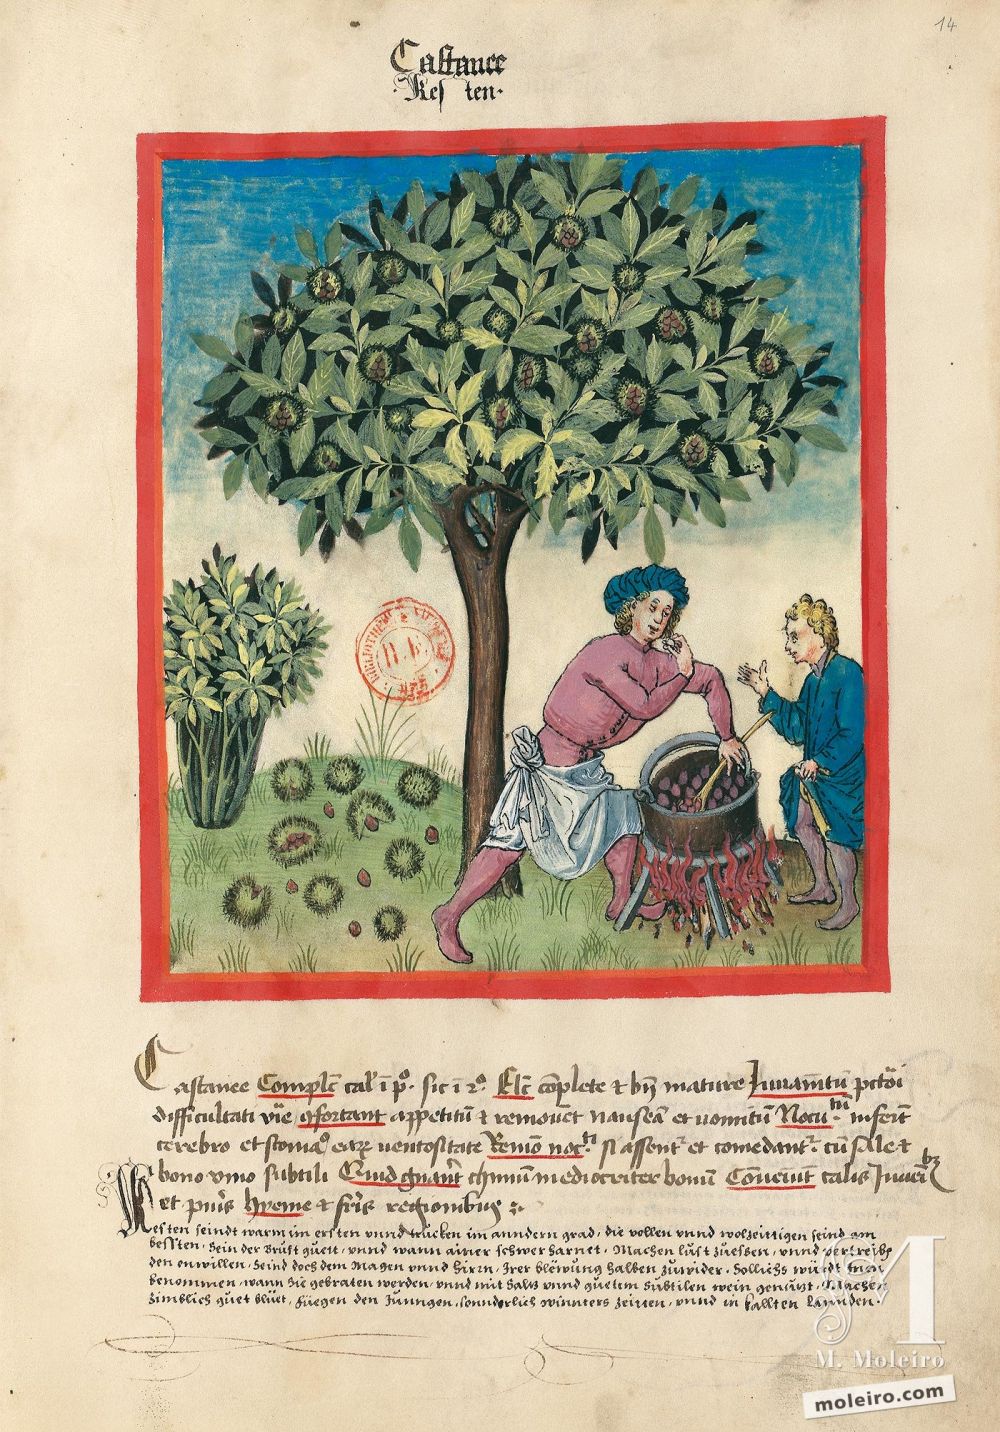 14
Castanee
·Kes ten·
BIBLIOTHEQUE
R.F.
Castanee Complc̄ cal̓ ī pͦ. sic ī 2ͦ. Elc̄ cōplete & bn̄ mature Juuamtū pctōri
difficultati vrīe ↄfortant appetitū & remouēt nauseā et uomitū Nocumtū inferūt
cerebro et stomaͦ eaꝝ uentositate Remō nocti si assentr̄ et comedantr̄ cū sale &
bono vino subtili Quid gn̄ant chimū mediocriter bonum Cōueniūt calis Juuenibꝫ
et pueris hyeme & fr̄is regionibus
Kesten seindt warm im ersten unnd trucken im anndern grad, die vollen unnd wolzeittigen seind am
bessten. Sein der Brust guett, unnd wann ainer schwer harnet. Machen lust zuessen, unnd vertreibe
den onwillen. Seind doch dem Magen unnd Hirn, Irer blewung halben zuwider. Sollichs wurdt Inen
benommen, wann Sie gebraten werden, unnd mit Saltz unnd guetem subtilen wein genützt. Machen
zimblich guet bluet, fuegen den Jungen, sonnderlich winnters zeitten, unnd in kallten Lannden.
M
M. Moleiro
moleiro.com